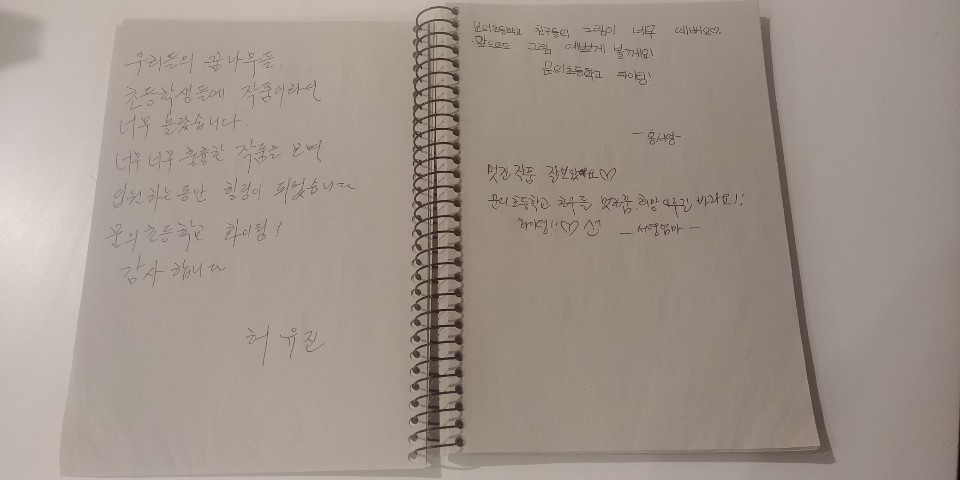 우리들의 꿈나무들
초등학생들에 작품이라서
너무 놀랐습니다.
너무 너무 훌륭한 작품을 보며
입원하는 동안 힐링이 되었습니다
꿈의초등학교 화이팅!
감사 합니다
허유진
문의초등학교 친구들의 그림이 너무 예뻐요♡.
앞으로도 그림 예쁘게 볼게요!
문의초등학교 파이팅!
- 홍서영 -
멋진 작품 잘보았어요♡
문의초등학교 친구들 멋진꿈, 희망 이루길 바라요!!
화이팅!!♡
- 서영엄마 -